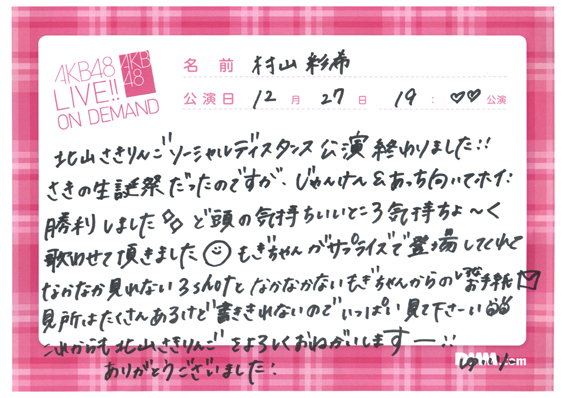 AKB48
LIVE!!
ON DEMAND
AKB
48
名前 村山彩希
公演日 12月27日 19:♡♡公演
北山さきりんごソーシャルディスタンス公演終わりました!!
さきの生誕祭だったのですが、じゃんけん&あっち向いてホイ!
勝利しました ど頭の気持ちいいところ気持ちよ〜く
歌わせて頂きました もぎちゃんがサプライズで登場してくれて
なかなか見れない3shotとなかなかないもぎちゃんからのお手紙
見所はたくさんあるけど書ききれないのでいっぱい見て下さーい
これからも北山さきりんごをよろしくおねがいしますー!!
ありがとうございました!
.com